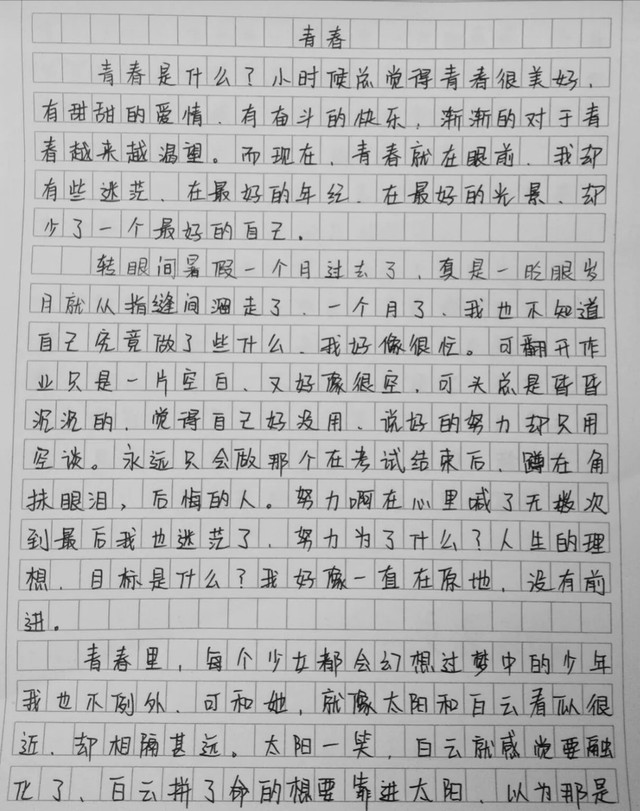 青春
青春是什么？小时候总觉得青春很美好，
有甜甜的爱情，有奋斗的快乐，渐渐的对于青
春越来越渴望。而现在，青春就在眼前，我却
有些迷茫，在最好的年纪，在最好的光景，却
少了一个最好的自己。
转眼间暑假一个月过去了，真是一眨眼岁
月就从指缝间溜走了，一个月了，我也不知道
自己究竟做了些什么，我好像很忙。可翻开作
业只是一片空白，又好像很空，可头总是昏昏
沉沉的，觉得自己好没用，说好的努力却只用
空谈。永远只会做那个在考试结束后，蹲在角
抹眼泪，后悔的人。努力啊在心里喊了无数次
到最后我也迷茫了，努力为了什么？人生的理
想，目标是什么？我好像一直在原地，没有前
进。
青春里，每个少女都会幻想过梦中的少年
我也不例外，可和她，就像太阳和白云看似很
近，却相隔甚远。太阳一笑，白云就感觉要融
化了，白云拼了命的想要靠进太阳，以为那是